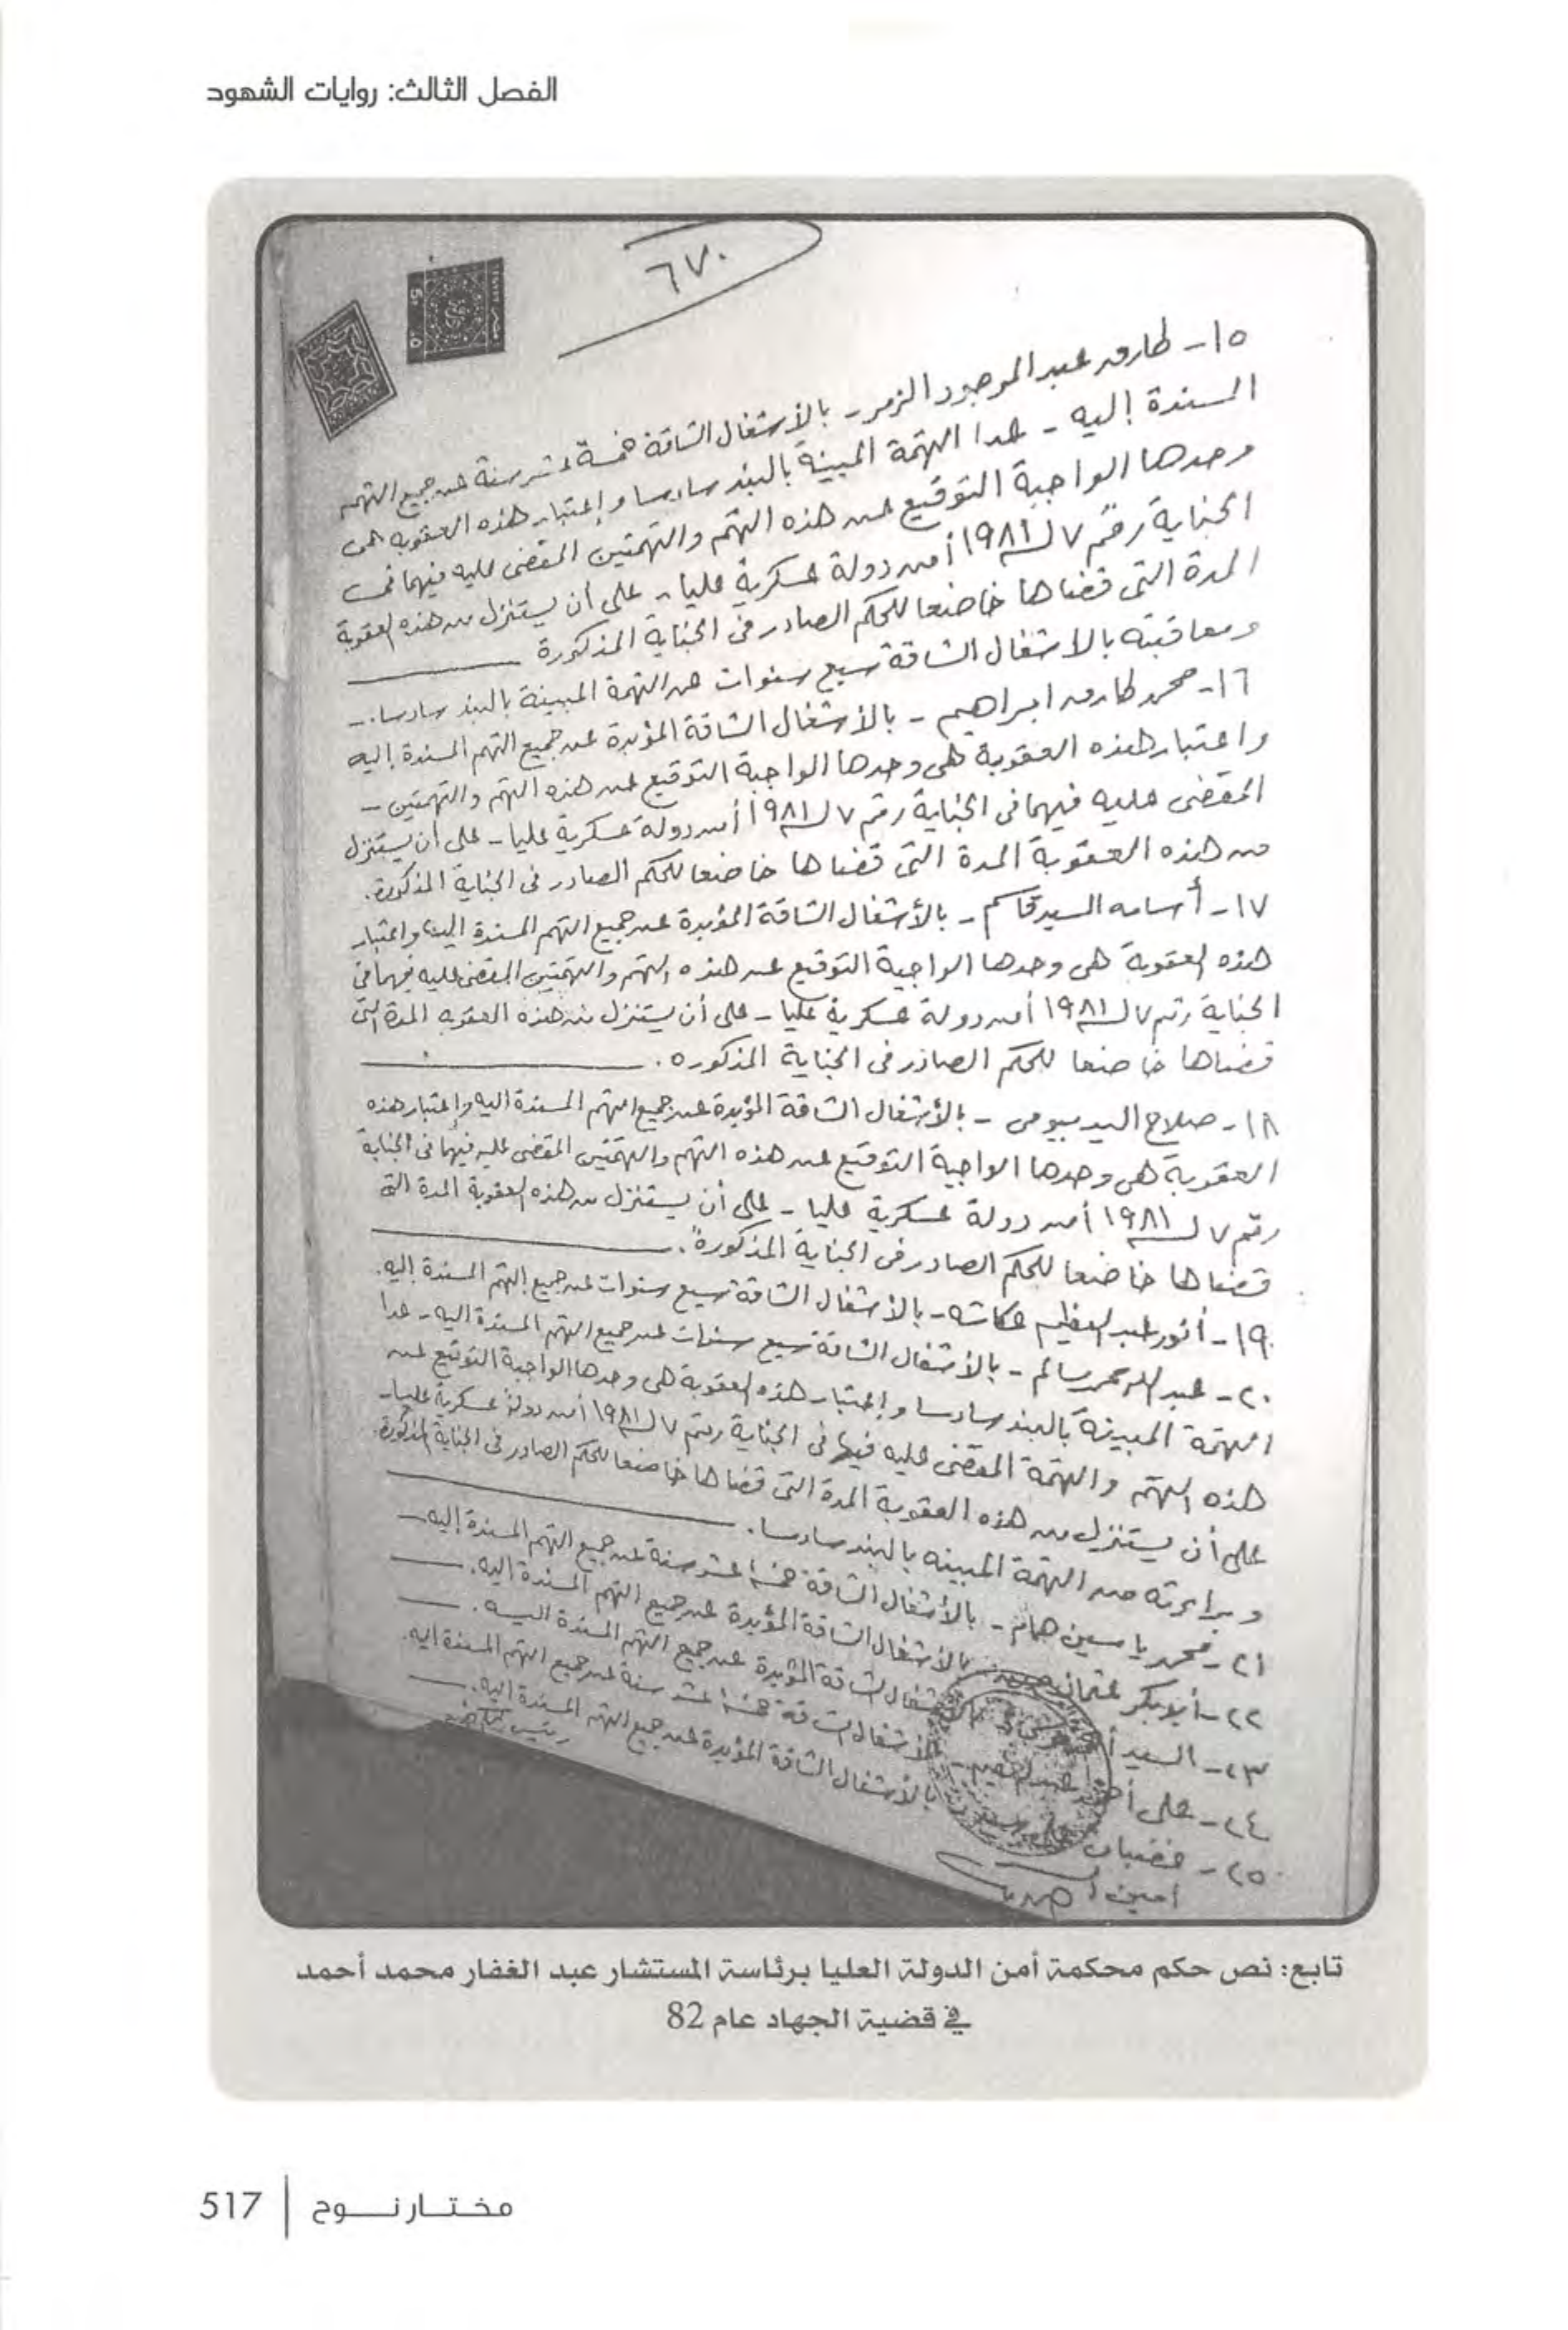 الفصل الثالث: روايات الشهود
٦٧٠
١٥- طارق عبد الموجود الزمر - بالأشغال الشاقة خمسة عشر سنة عن جميع التهم
المسندة إليه - عدا التهمة المبينة بالبند سادسا وإعتبار هذه العقوبة هى
وحدها الواجبة التوقيع عن هذه التهم والتهمتين المقضى عليه فيهما فى
الجناية رقم ٧ لسنة ١٩٨١ أمن دولة عسكرية عليا - على أن يستنزل من هذه العقوبة
المدة التى قضاها خاضعا للحكم الصادر فى الجناية المذكورة
ومعاقبته بالاشغال الشاقة سبع سنوات عن التهمة المبينة بالبند سادسا. -
١٦- محمد طارق ابراهيم - بالأشغال الشاقة المؤبدة عن جميع التهم المسندة إليه
واعتبار هذه العقوبة هى وحدها الواجبة التوقيع عن هذه التهم والتهمتين -
المقضى عليه فيهما فى الجناية رقم ٧ لسنة ١٩٨١ أمن دولة عسكرية عليا - على أن يستنزل
من هذه العقوبة المدة التى قضاها خاضعا للحكم الصادر فى الجناية المذكورة.
١٧- أسامه السيد قاسم - بالأشغال الشاقة المؤبدة عن جميع التهم المسندة إليه واعتبار
هذه العقوبة هى وحدها الواجبة التوقيع عن هذه التهم والتهمتين المقضى عليه فيهما فى
الجناية رقم ٧ لسنة ١٩٨١ أمن دولة عسكرية عليا - على أن يستنزل من هذه العقوبه المدة التى
قضاها خاضعا للحكم الصادر فى الجناية المذكوره.
١٨- صلاح السيد بيومى - بالأشغال الشاقة المؤبدة عن جميع التهم المسندة اليه وإعتبار هذه
العقوبة هى وحدها الواجبة التوقيع عن هذه التهم والتهمتين المقضى عليه فيهما فى الجناية
رقم ٧ لسنة ١٩٨١ أمن دولة عسكرية عليا - على أن يستنزل من هذه العقوبة المدة التى
قضاها خاضعا للحكم الصادر فى الجناية المذكورة.
١٩- أنور عبد العظيم عكاشه - بالأشغال الشاقة سبع سنوات عن جميع التهم المسندة إليه.
٢٠- عبد الله محمد سالم - بالأشغال الشاقة سبع سنوات عن جميع التهم المسندة اليه - عدا
التهمة المبينة بالبند سادسا وإعتبار هذه العقوبة هى وحدها الواجبة التوقيع عن
هذه التهم والتهمة المقضى عليه فيها فى الجناية رقم ٧ لسنة ١٩٨١ أمن دولة عسكرية عليا -
على أن يستنزل من هذه العقوبة المدة التى قضاها خاضعا للحكم الصادر فى الجناية المذكورة.
وبراءته من التهمة المبينه بالبند سادسا.
٢١- محمد ياسين همام - بالأشغال الشاقة خمسة عشر سنة عن جميع التهم المسندة إليه -
٢٢- أبو بكر عثمان - بالأشغال الشاقة المؤبدة عن جميع التهم المسندة اليه. -
٢٣- السيد بالأشغال الشاقة المؤبدة عن جميع التهم المسندة اليه. -
٢٤- على أحمد - بالأشغال الشاقة خمسة عشر سنة عن جميع التهم المسندة اليه.
٢٥- بالأشغال الشاقة المؤبدة عن جميع التهم المسندة اليه. -
تابع: نص حكم محكمة أمن الدولة العليا برئاسة المستشار عبد الغفار محمد أحمد
في قضية الجهاد عام 82
مختار نوح | 517